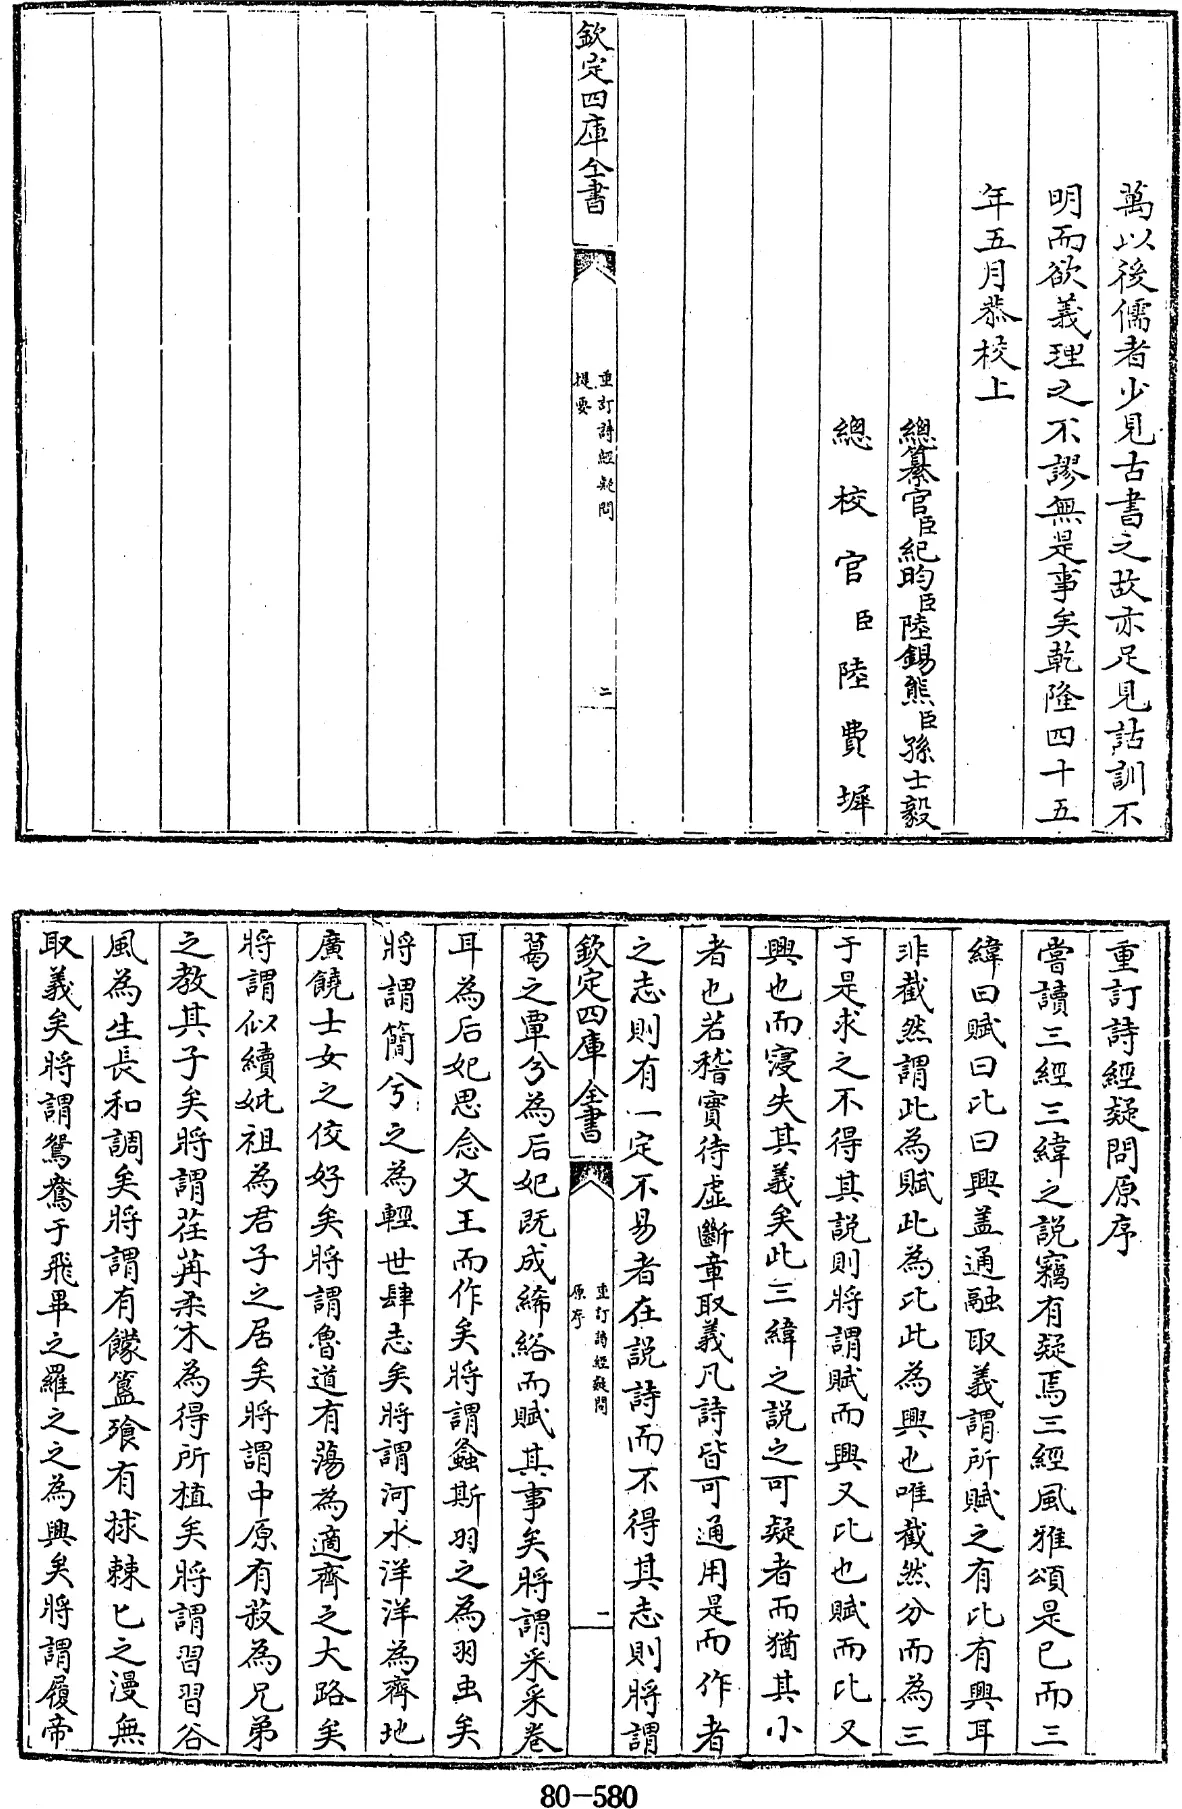 萬以後儒者少見古書之故亦足見詁訓不
明而欲義理之不謬無是事矣乾隆四十五
年五月恭校上
總纂官臣紀昀臣陸錫熊臣孫士毅
總校官臣陸費墀
欽定四庫全書
重訂詩經疑問
提要
二
重訂詩經疑問原序
嘗讀三經三緯之說竊有疑焉三經風雅頌是已而三
緯曰賦曰比曰興盖通融取義謂所賦之有比有興耳
非截然謂此為賦此為比此為興也唯截然分而為三
于是求之不得其說則將謂賦而興又比也賦而比又
興也而寖失其義矣此三緯之說之可疑者而猶其小
者也若稽實待虛斷章取義凡詩皆可通用是而作者
之志則有一定不易者在說詩而不得其志則將謂
欽定四庫全書
重訂詩經疑問
原序
一
葛之覃兮為后妃既成絺綌而賦其事矣將謂采采卷
耳為后妃思念文王而作矣將謂螽斯羽之為羽虫矣
將謂簡兮之為輕世肆志矣將謂河水洋洋為齊地
廣饒士女之佼好矣將謂魯道有蕩為適齊之大路矣
將謂似續妣祖為君子之居矣將謂中原有菽為兄弟
之教其子矣將謂荏苒柔木為得所植矣將謂習習谷
風為生長和調矣將謂有饛簋飧有捄棘匕之漫無
取義矣將謂鴛鴦于飛畢之羅之之為興矣將謂履帝
80-580